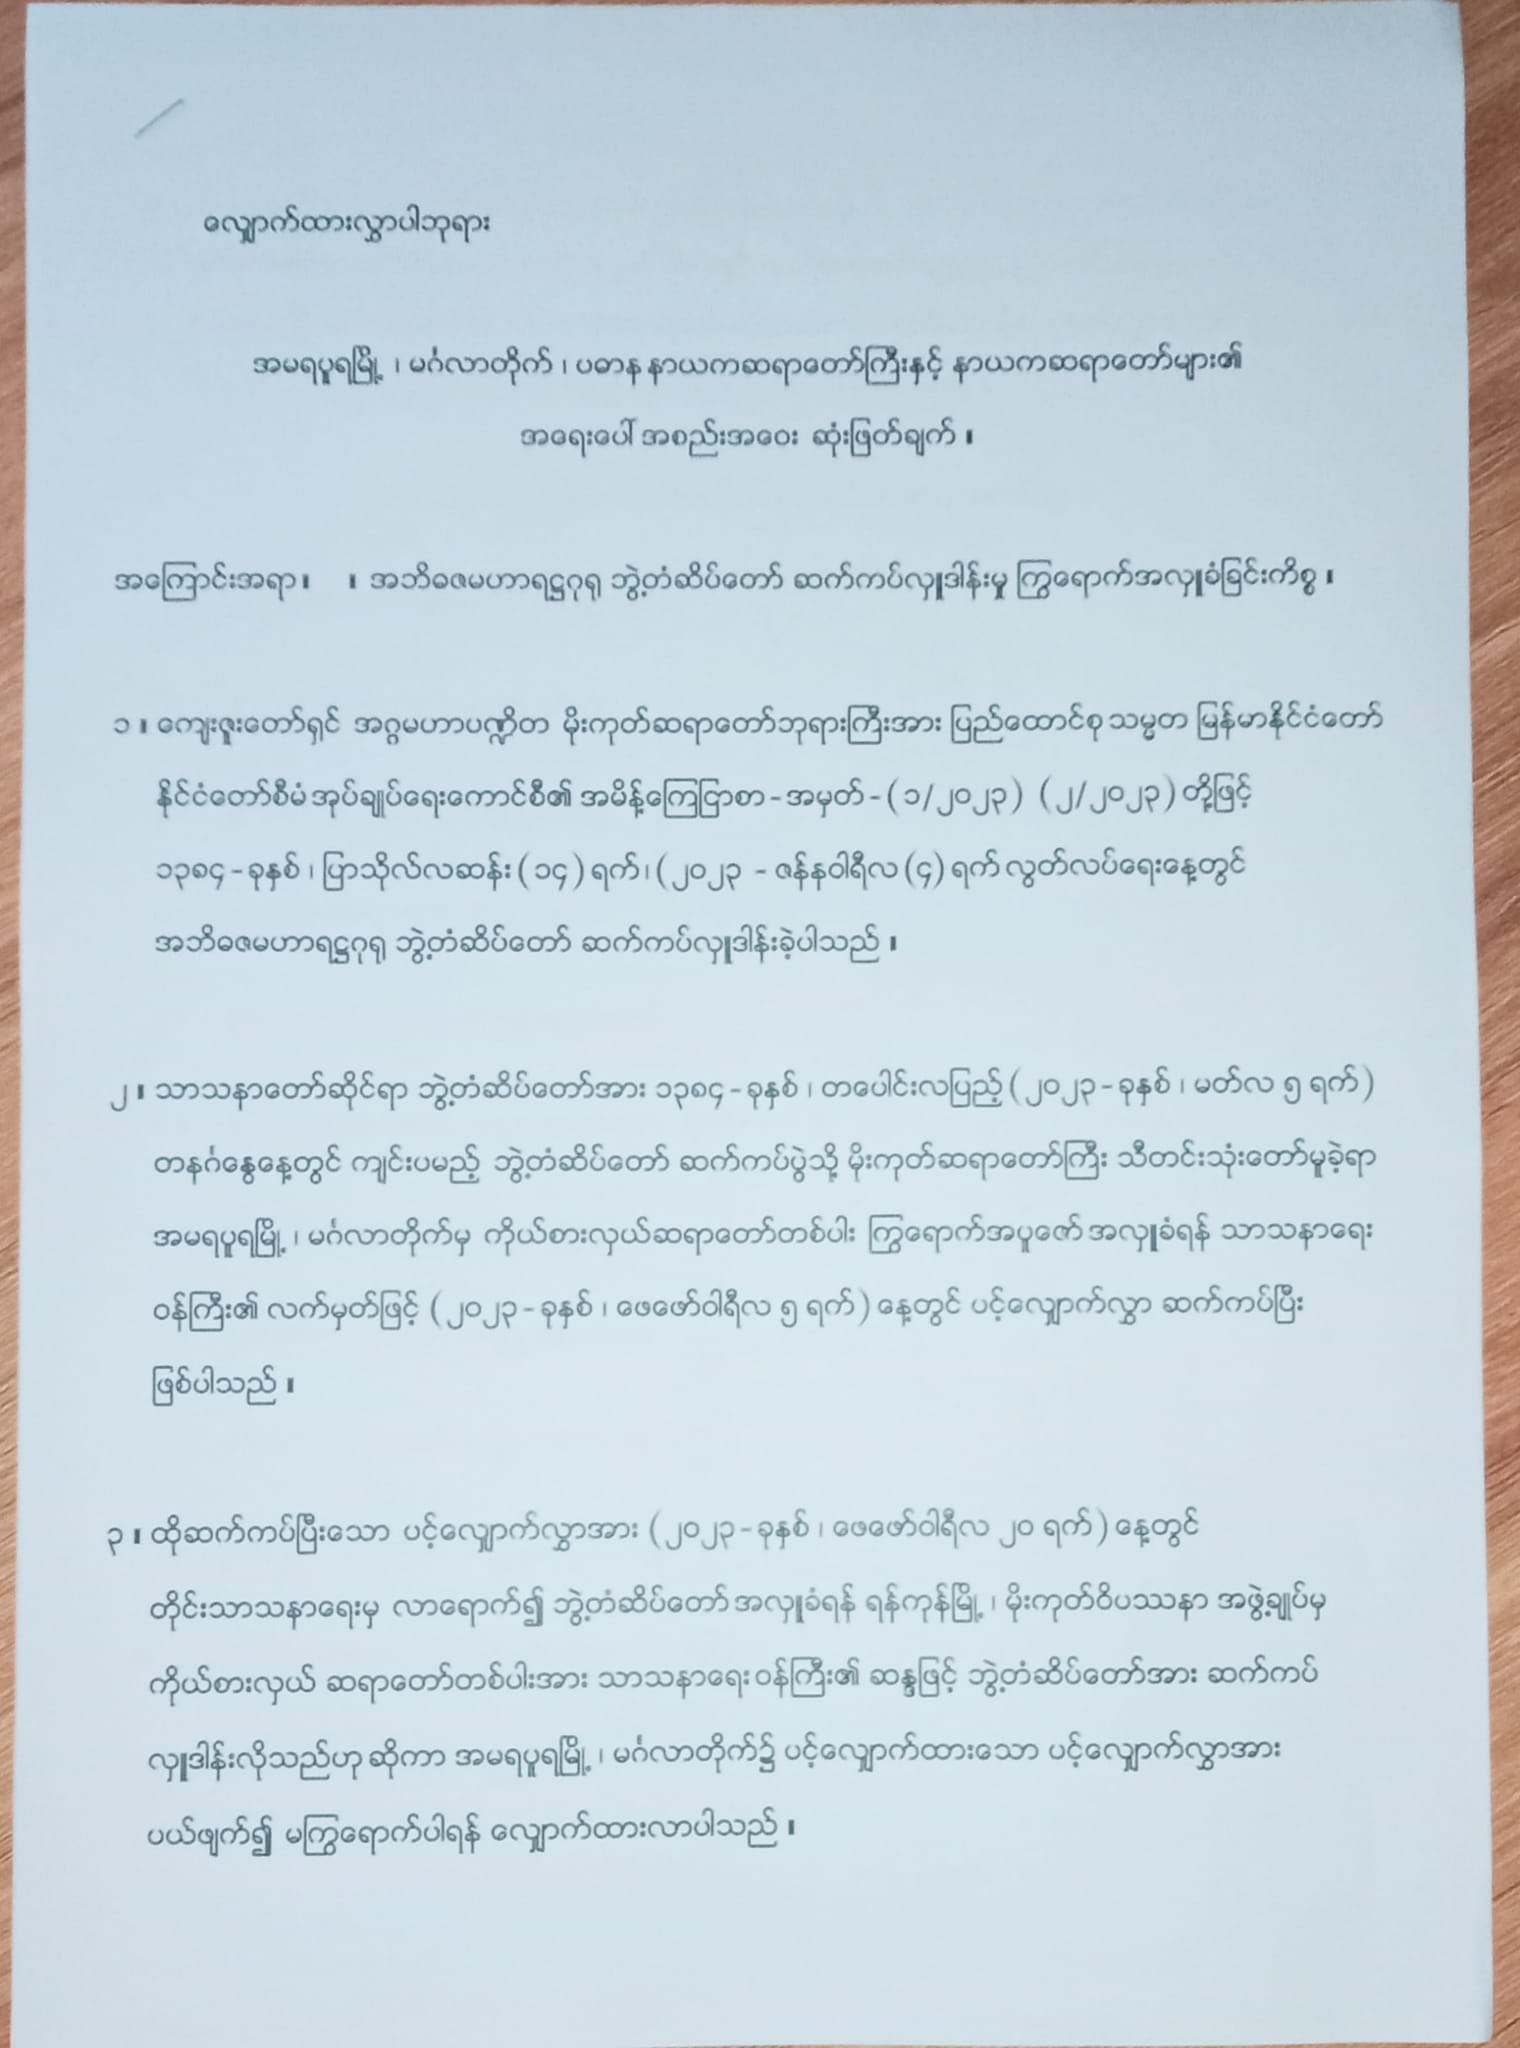 လျှောက်ထားလွှာပါဘုရား
အမရပူရမြို့ ၊ မင်္ဂလာတိုက် ၊ ပဓာန နာယကဆရာတော်ကြီးနှင့် နာယကဆရာတော်များ၏
အရေးပေါ် အစည်းအဝေး ဆုံးဖြတ်ချက် ။
အကြောင်းအရာ ။ ။ အဘိဓဇမဟာရဋ္ဌဂုရု ဘွဲ့တံဆိပ်တော် ဆက်ကပ်လှူဒါန်းမှု ကြွရောက်အလှူခံခြင်းကိစ္စ ။
၁ ။ ကျေးဇူးတော်ရှင် အဂ္ဂမဟာပဏ္ဍိတ မိုးကုတ်ဆရာတော်ဘုရားကြီးအား ပြည်ထောင်စု သမ္မတ မြန်မာနိုင်ငံတော်
နိုင်ငံတော်စီမံ အုပ်ချုပ်ရေးကောင်စီ၏ အမိန့်ကြေငြာစာ - အမှတ် - ( ၁/၂၀၂၃ ) ( ၂/၂၀၂၃ ) တို့ဖြင့်
၁၃၈၄ - ခုနှစ် ၊ ပြာသိုလ်လဆန်း ( ၁၄ ) ရက် ၊ ( ၂၀၂၃ - ဇန်နဝါရီလ (၄) ရက် လွတ်လပ်ရေးနေ့တွင်
အဘိဓဇမဟာရဋ္ဌဂုရု ဘွဲ့တံဆိပ်တော် ဆက်ကပ်လှူဒါန်းခဲ့ပါသည် ။
၂ ။ သာသနာတော်ဆိုင်ရာ ဘွဲ့တံဆိပ်တော်အား ၁၃၈၄ - ခုနှစ် ၊ တပေါင်းလပြည့် ( ၂၀၂၃ - ခုနှစ် ၊ မတ်လ ၅ ရက် )
တနင်္ဂနွေနေ့တွင် ကျင်းပမည့် ဘွဲ့တံဆိပ်တော် ဆက်ကပ်ပွဲသို့ မိုးကုတ်ဆရာတော်ကြီး သီတင်းသုံးတော်မူခဲ့ရာ
အမရပူရမြို့ ၊ မင်္ဂလာတိုက်မှ ကိုယ်စားလှယ်ဆရာတော်တစ်ပါး ကြွရောက်အပူဇော် အလှူခံရန် သာသနာရေး
ဝန်ကြီး၏ လက်မှတ်ဖြင့် ( ၂၀၂၃ - ခုနှစ် ၊ ဖေဖော်ဝါရီလ ၅ ရက် ) နေ့တွင် ပင့်လျှောက်လွှာ ဆက်ကပ်ပြီး
ဖြစ်ပါသည် ။
၃ ။ ထိုဆက်ကပ်ပြီးသော ပင့်လျှောက်လွှာအား ( ၂၀၂၃ - ခုနှစ် ၊ ဖေဖော်ဝါရီလ ၂၀ ရက် ) နေ့တွင်
တိုင်းသာသနာရေးမှ လာရောက်၍ ဘွဲ့တံဆိပ်တော် အလှူခံရန် ရန်ကုန်မြို့ ၊ မိုးကုတ်ဝိပဿနာ အဖွဲ့ချုပ်မှ
ကိုယ်စားလှယ် ဆရာတော်တစ်ပါးအား သာသနာရေး ဝန်ကြီး၏ ဆန္ဒဖြင့် ဘွဲ့တံဆိပ်တော်အား ဆက်ကပ်
လှူဒါန်းလိုသည်ဟု ဆိုကာ အမရပူရမြို့ ၊ မင်္ဂလာတိုက်၌ ပင့်လျှောက်ထားသော ပင့်လျှောက်လွှာအား
ပယ်ဖျက်၍ မကြွရောက်ပါရန် လျှောက်ထားလာပါသည် ။